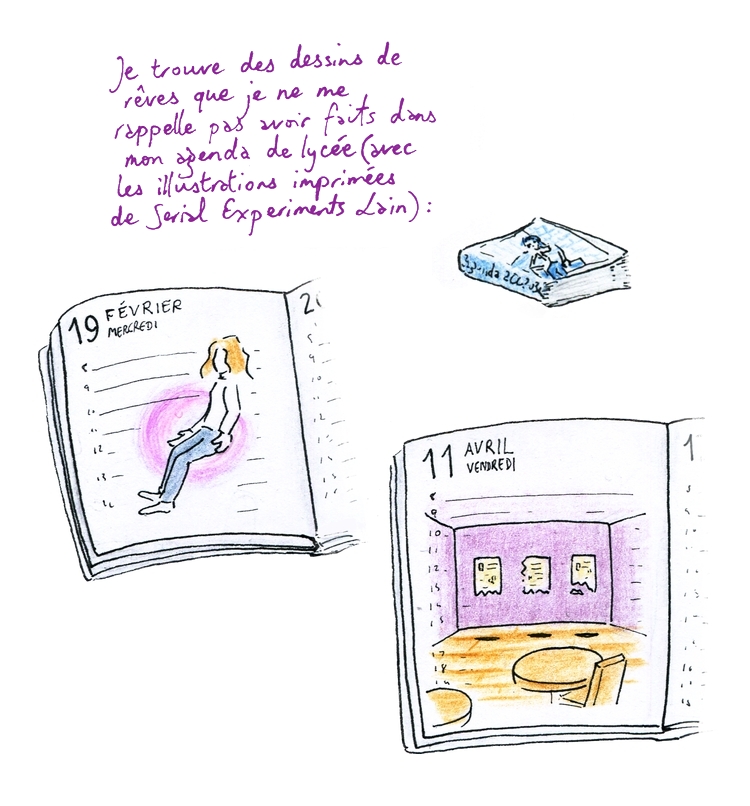 Je trouve des dessins de
rêves que je ne me
rappelle pas avoir faits dans
mon agenda de lycée (avec
les illustrations imprimées
de Serial Experiments Lain) :
19 FÉVRIER
MERCREDI
8
9
10
11
12
13
14
11 AVRIL
VENDREDI
8
9
10
11
12
13
14
15
17
18